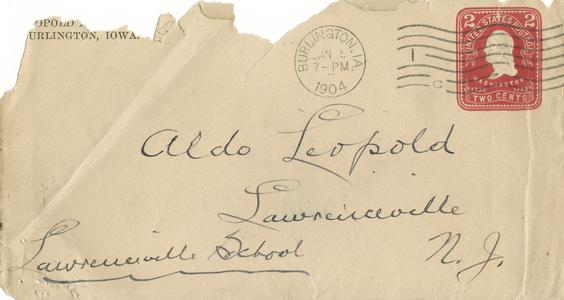 OPOLD
URLINGTON, IOWA.
BURLINGTON, IA.
JAN 5
7-PM
1904
1
C
2 2
UNITED STATES POSTAGE
WASHINGTON
TWO CENTS
Aldo Leopold
Lawrenceville
Lawrenceville School
N. J.